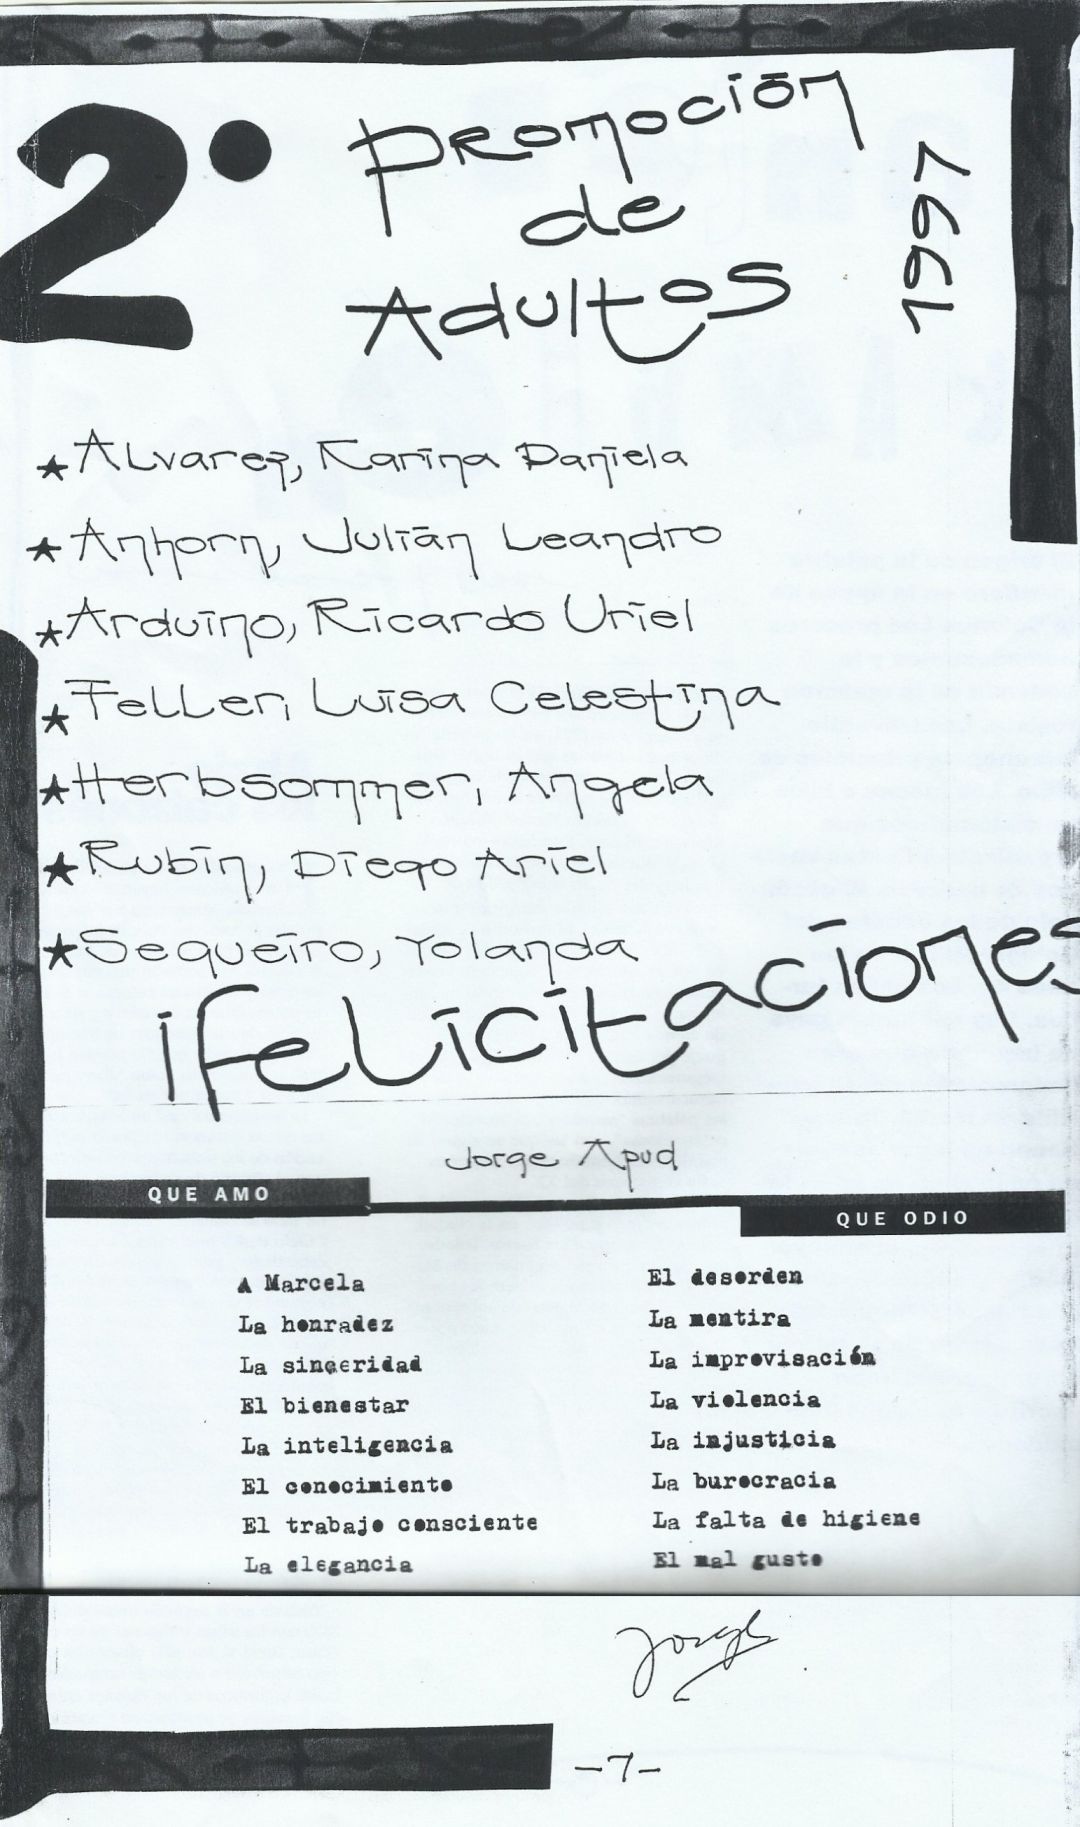 2° Promoción
de
Adultos
1997
★ Alvarez, Karina Daniela
★ Anhorn, Julián Leandro
★ Arduino, Ricardo Uriel
★ Feller, Luisa Celestina
★ Herbsommer, Angela
★ Rubin, Diego Ariel
★ Sequeiro, Yolanda
¡felicitaciones
Jorge Apud
QUE AMO
A Marcela
La honradez
La sinceridad
El bienestar
La inteligencia
El conocimiento
El trabajo consciente
La elegancia
QUE ODIO
El desorden
La mentira
La improvisación
La violencia
La injusticia
La burocracia
La falta de higiene
El mal gusto
Jorge
-7-